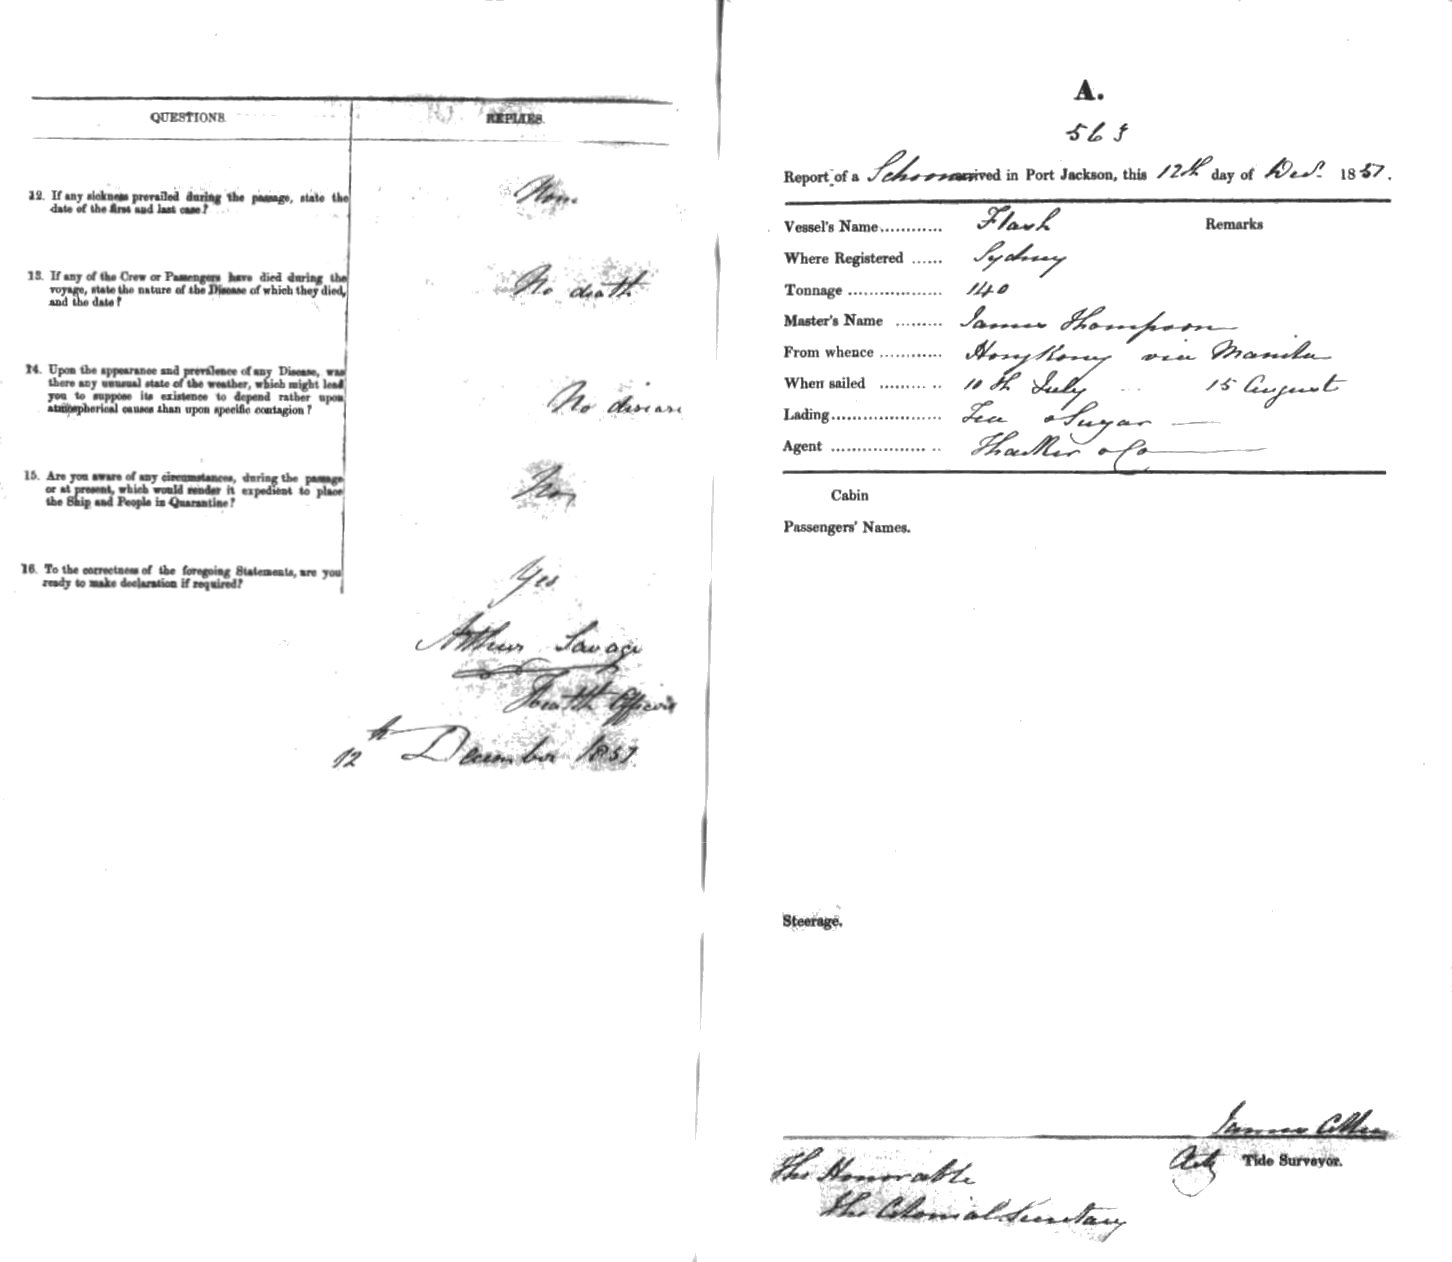 QUESTIONS. REPLIES.
12. If any sickness prevailed during the passage, state the
date of the first and last case?
None
13. If any of the Crew or Passengers have died during the
voyage, state the nature of the Disease of which they died,
and the date?
No death
14. Upon the appearance and prevalence of any Disease, was
there any unusual state of the weather, which might lead
you to suppose its existence to depend rather upon
atmospherical causes than upon specific contagion?
No disease
15. Are you aware of any circumstances, during the passage
or at present, which would render it expedient to place
the Ship and People in Quarantine?
No
16. To the correctness of the foregoing Statements, are you
ready to make declaration if required?
Yes
Arthur Savage
Health Officer
12th December 1857
A.
563
Report of a Schooner arrived in Port Jackson, this 12th day of Dec. 1857.
Vessel's Name............ Flash Remarks
Where Registered ...... Sydney
Tonnage .................. 140
Master's Name ......... James Thompson
From whence ............ Hong Kong via Manila
When sailed ......... .. 10th July 15 August
Lading..................... Tea & Sugar
Agent .................. .. Thacker & Co
Cabin
Passengers' Names.
Steerage.
James
Actg Tide Surveyor.
The Honorable
The Colonial Secretary